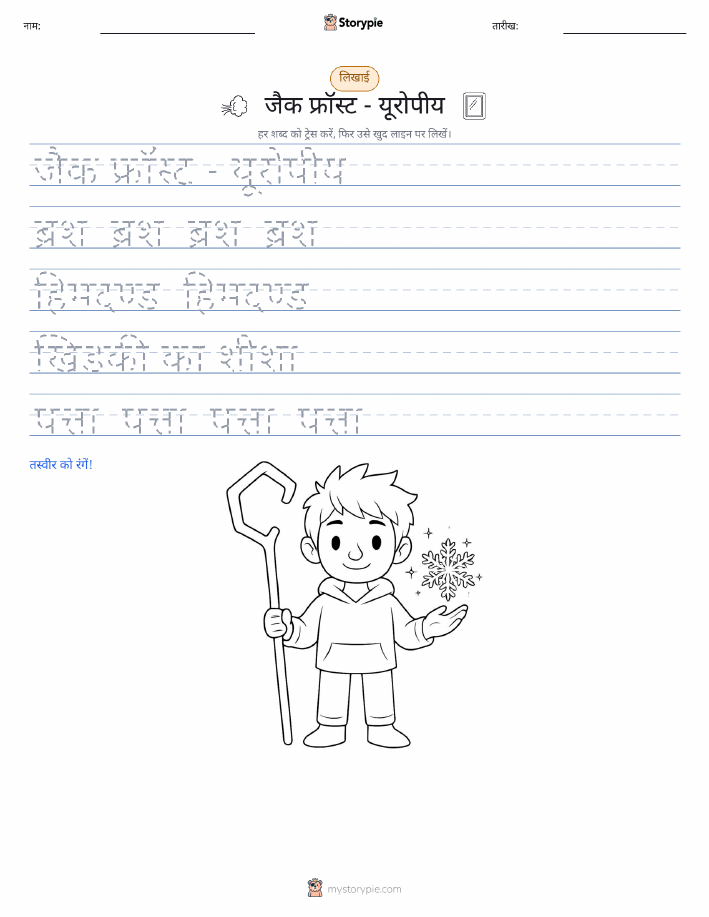 नाम:
Storypie
तारीख:
लिखाई
जैक फ्रॉस्ट - यूरोपीय
हर शब्द को ट्रेस करें, फिर उसे खुद लाइन पर लिखें।
जैक फ्रॉस्ट - यूरोपीय
ब्रश ब्रश ब्रश ब्रश
हिमदण्ड हिमदण्ड
खिड़की का शीशा
पत्ता पत्ता पत्ता पत्ता
तस्वीर को रंगें!
mystorypie.com